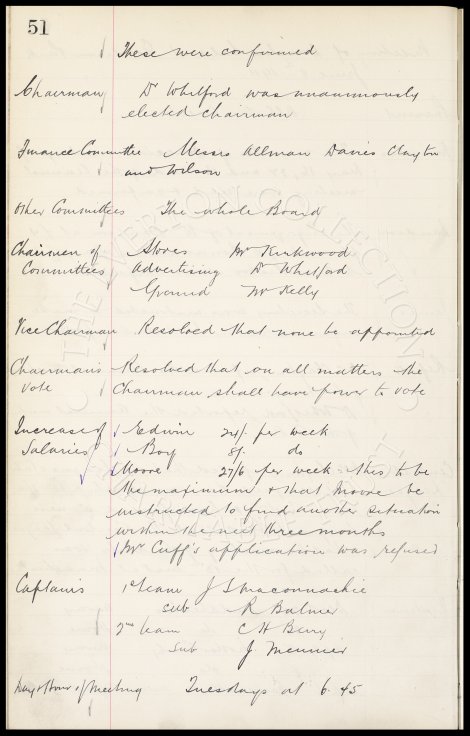 51
These were confirmed
Chairman Dr Whitford was unanimously
elected chairman
Finance Committee Messrs Allman Davies Clayton
and Wilson
Other Committees The whole Board
Chairmen of Stores Mr Kirkwood
Committees Advertising Dr Whitford
Ground Mr Kelly
Vice Chairman Resolved that none be appointed
Chairman's Resolved that on all matters the
Vote Chairman shall have power to vote
Increase of Edwin 24/- per week
Salaries Boy 8/- do
Moore 27/6 per week this to be
the maximum & that Moore be
instructed to find another situation
within the next three months
Mr Cuff's application was refused
Captains 1st team J S Maconnachie
sub R Balmer
2nd team C H Berry
sub J. Meunier
Day & Hour of Meeting Tuesdays at 6.45
THE EVERTON COLLECTION